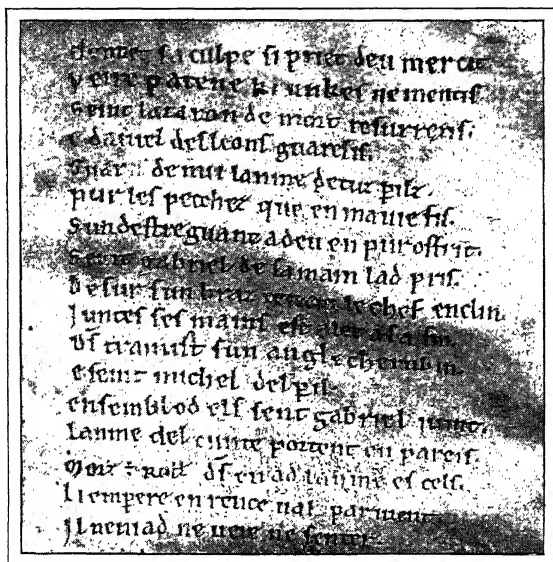 cleimet sa culpe si priet deu mercit
veire patene ki unkes ne mentis
seint lazaron de mort resurrexis.
e daniel des leons guaresis.
Guaris de mei lanme de tuz perilz.
pur les pecchez que en ma vie fis.
Sun destre guant a deu en puroffrit.
Seint gabriel de sa main lad pris.
Desur sun braz teneit le chef enclin.
Juntes ses mains est alet a sa fin.
Ds tramist sun angle cherubin.
e seint michel del pil
ensembl od els sent gabriel i uint.
Lanme del cunte portent en pareis.
Morz ÷ Roll ds en ad lanme es cels.
Li empere en rence uals paruient.
Il nen i ad ne ueie ne senter.